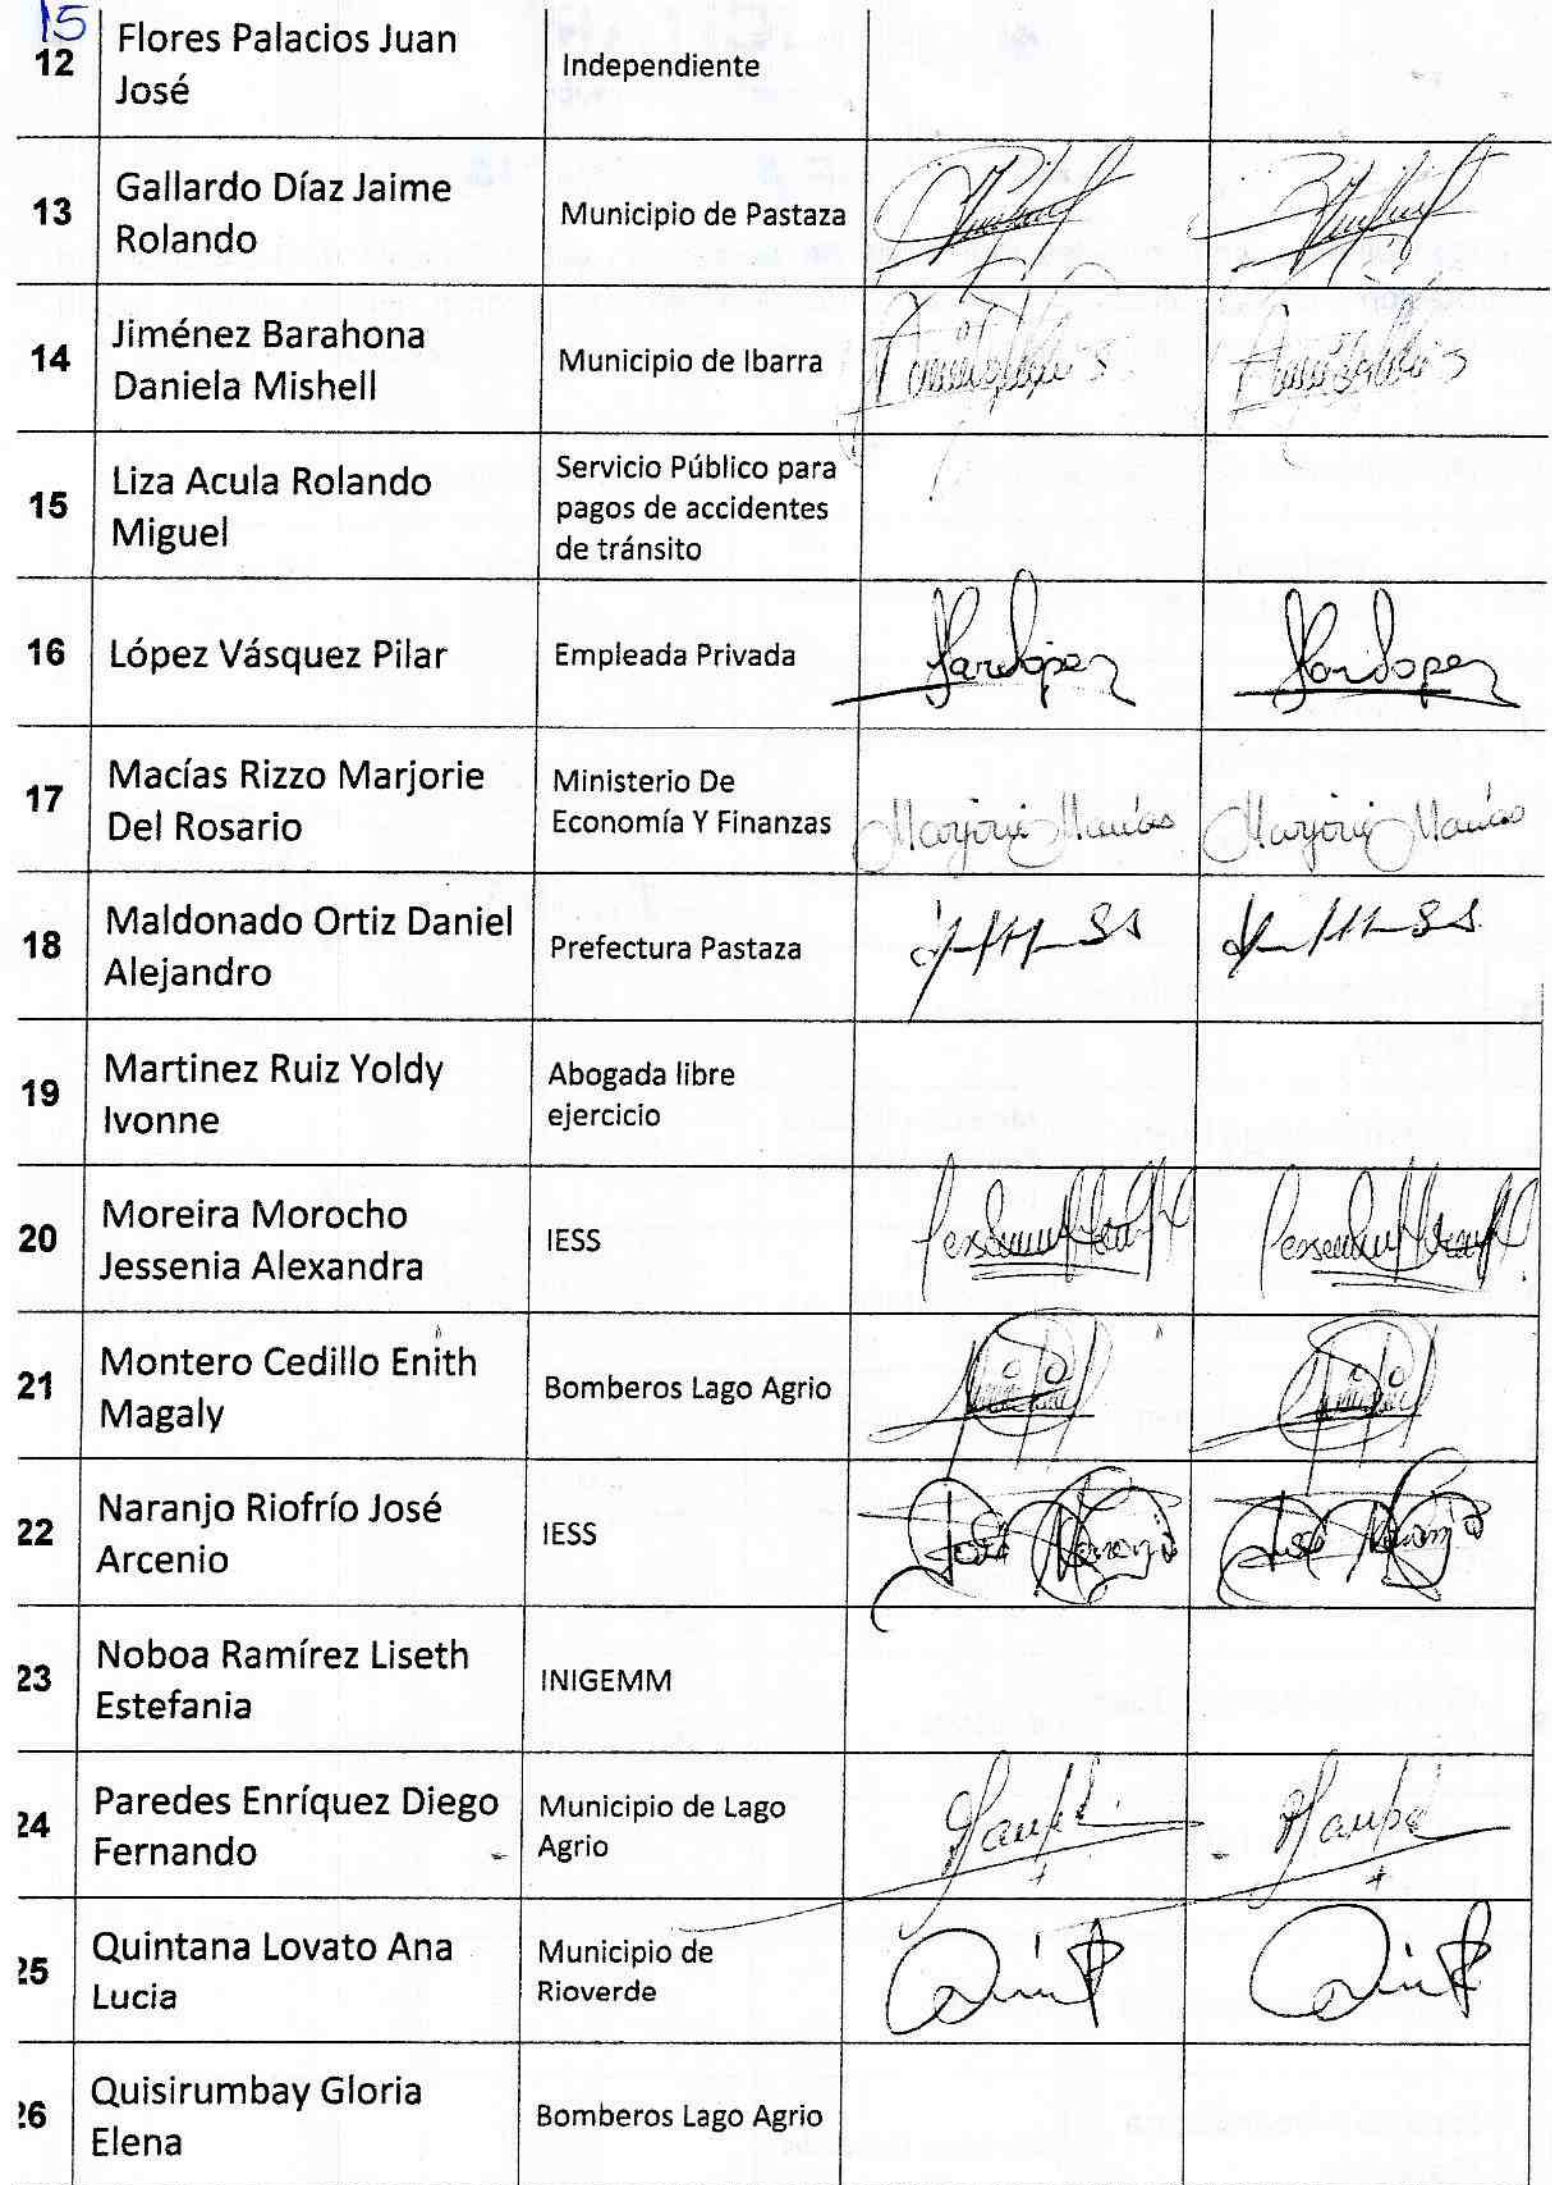 15
12
Flores Palacios Juan
José
Independiente
13
Gallardo Díaz Jaime
Rolando
Municipio de Pastaza
14
Jiménez Barahona
Daniela Mishell
Municipio de Ibarra
15
Liza Acula Rolando
Miguel
Servicio Público para
pagos de accidentes
de tránsito
16
López Vásquez Pilar
Empleada Privada
17
Macías Rizzo Marjorie
Del Rosario
Ministerio De
Economía Y Finanzas
Marjorie Macías
Marjorie Macías
18
Maldonado Ortiz Daniel
Alejandro
Prefectura Pastaza
19
Martinez Ruiz Yoldy
Ivonne
Abogada libre
ejercicio
20
Moreira Morocho
Jessenia Alexandra
IESS
21
Montero Cedillo Enith
Magaly
Bomberos Lago Agrio
22
Naranjo Riofrío José
Arcenio
IESS
José Naranjo
José Naranjo
23
Noboa Ramírez Liseth
Estefania
INIGEMM
24
Paredes Enríquez Diego
Fernando
Municipio de Lago
Agrio
25
Quintana Lovato Ana
Lucia
Municipio de
Rioverde
26
Quisirumbay Gloria
Elena
Bomberos Lago Agrio